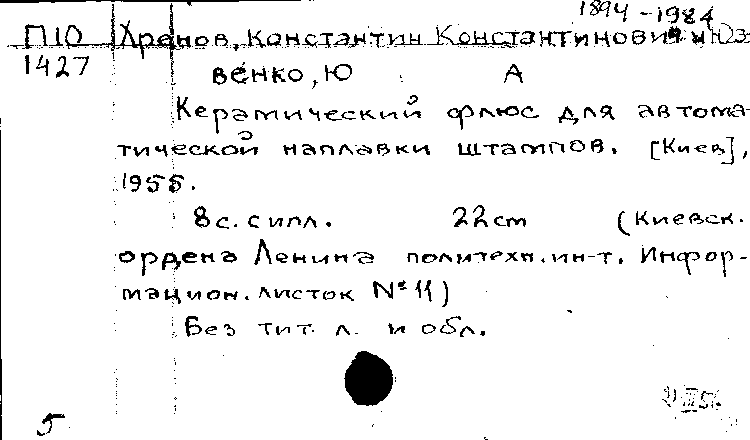 1894-1984
П10 Хренов, Константин Константинович и Юз-
1427 венко, Ю А
Керамический флюс для автома-
тической наплавки штампов. [Киев],
1955.
8 с. с илл. 22 cm (Киевск.
ордена Ленина политехн. ин-т. Инфор-
мацион. листок № 11)
Без тит. л. и обл.
5